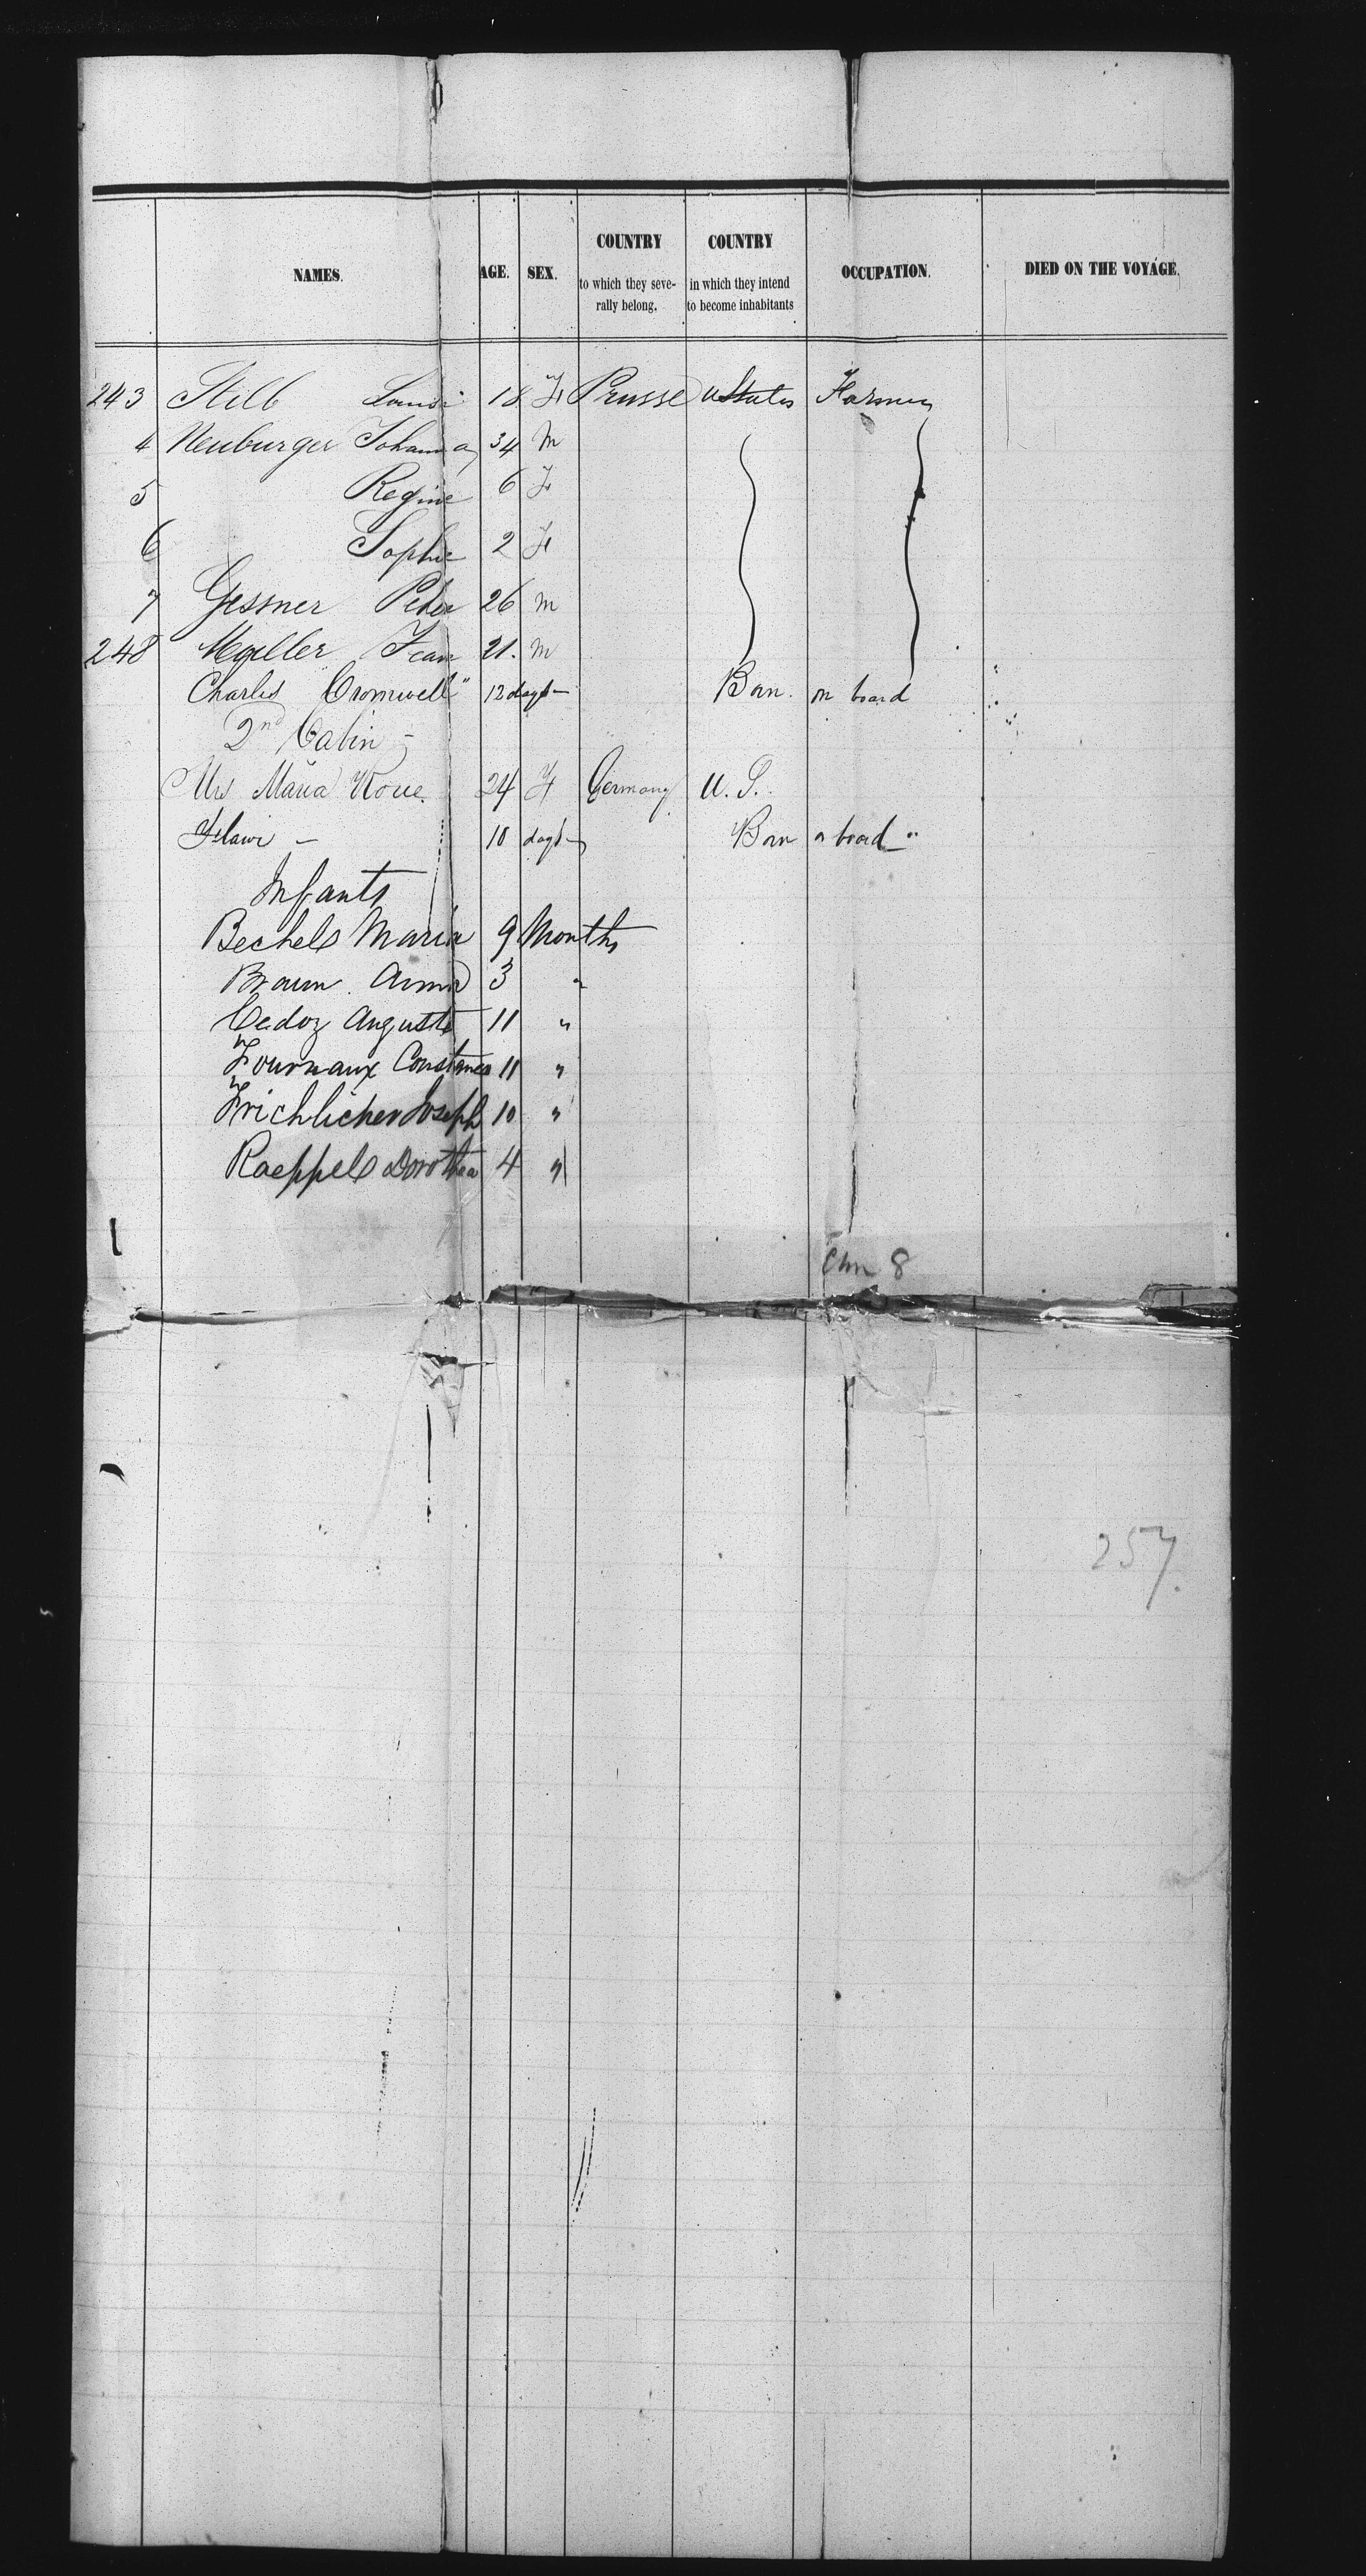 NAMES. AGE. SEX. COUNTRY to which they seve-rally belong. COUNTRY in which they intend to become inhabitants OCCUPATION. DIED ON THE VOYAGE.
243 Stilb Louise 18 F Prusse UStates Farmer
4 Neuburger Johanna 34 M
5 Regine 6 F
6 Sophie 2 F
7 Gessner Peter 26 M
248 Mueller Jean 21. M
Charles Cromwell" 12 days Born on board
2nd Cabin
Mrs Maria 24 F Germany U.S.
10 days Born a board
Infants
Bechels Maria 9 Months
Braun Anna 3 "
Cedoz Auguste 11 "
Fournaux Constance 11 "
Frichlicher Joseph 10 "
Raeppels Dorothea 4 "
8
257.